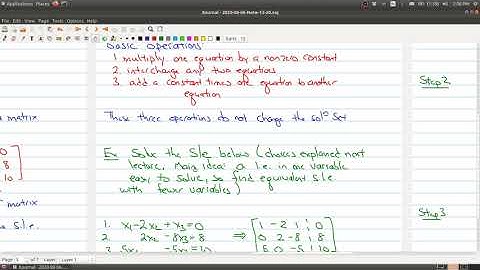 Applications Places
Xournal - 2020-08-06-Note-13-20.xoj
2:06 PM
basic operations
1 multiply one equation by a nonzero constant
2. interchange any two equations
3. add a constant times one equation to another
equation
These three operations do not change the sol^n set
Ex Solve the S/e below (choices explained next
lecture, main idea: a l.e. in one variable
easy to solve, so find equivalent s.l.e.
with fewer variables)
1. x₁-2x₂ + x₃=0
2. 2x₂ -8x₃=8
3. 5x₁ -5x₃=10
⇒ [1 -2 1 | 0
0 2 -8 | 8
5 0 -5 | 10]
matrix
0
8
10]
matrix
s.l.e.
Step 2
Step 3